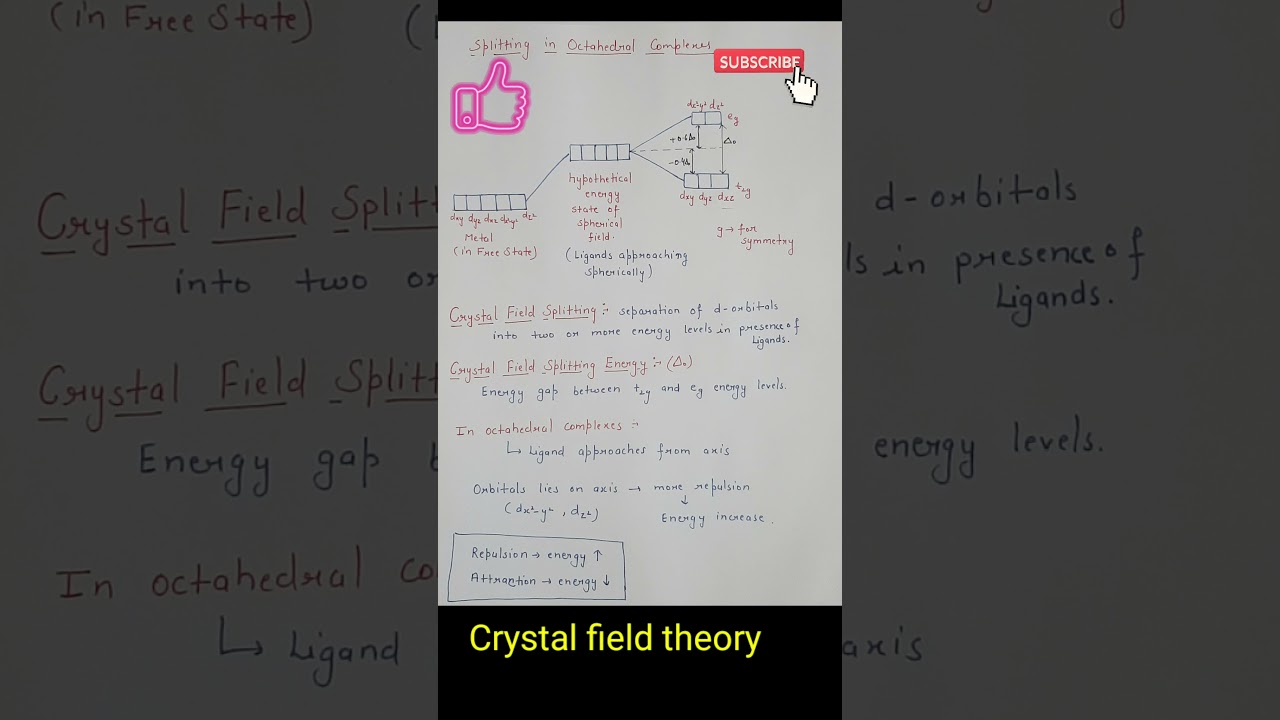 Splitting in Octahedral Complexes
SUBSCRIBE
dx²y² dz²
eg
+0.6Δ₀
Δ₀
-0.4Δ₀
t₂g
dxy dyz dxz
g → for
symmetry
hypothetical
energy
state of
spherical
field.
(Ligands approaching
spherically)
dxy dyz dxz dx²y² dz²
Metal
(in Free State)
Crystal Field Splitting :- separation of d-orbitals
into two or more energy levels in presence of
Ligands.
Crystal Field Splitting Energy :- (Δ₀)
Energy gap between t₂g and eg energy levels.
In octahedral complexes :-
↳ Ligand approaches from axis
Orbitals lies on axis → more repulsion
(dx²-y², dz²)
↓
Energy increase.
Repulsion → energy ↑
Attraction → energy ↓
Crystal field theory
(in Free State)
Crystal Field Splitt
d-orbitals
into two or
ls in presence of
Ligands.
Crystal Field Splitt
Energy gap
energy levels.
In octahedral co
↳ Ligand
axis